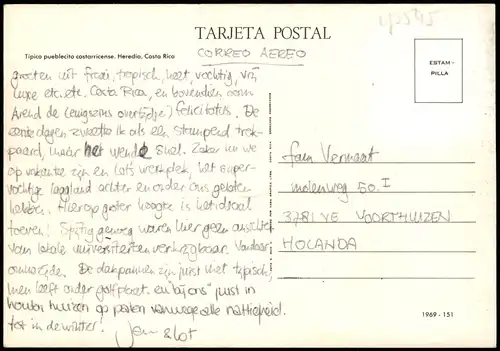 TARJETA POSTAL
Típico pueblecito costarricense. Heredia, Costa Rica
CORREO AEREO
ESTAM-
PILLA
groeten uit fraai, tropisch, heet, vochtig, vrij
luxe etc. etc. Costa Rica, en bovendien aan
Arend de (enigszins overtijdse) felicitatus. De
eerste dagen zweette ik als een stampend trek-
paard, maar het wende snel. Zeker nu we
op vakantie zijn en Lot's werkplek, het super-
vochtige laagland achter en onder ons gelaten
hebben. Hierop groter hoogte is het ideaal
toeven! Spijtig genoeg waren hier geen ansichten
van lokale universiteiten verkrijgbaar. Vandaar
De dakpannen zijn juist niet typisch,
men leeft onder golfplaat. en "bij ons" juist in
houten huizen op palen vanwege alle nattigheid.
tot in de winter!
Jan & Lot
fam Vermaat
molenweg 50.I
3781 VE VOORTHUIZEN
HOLANDA
1969 - 151